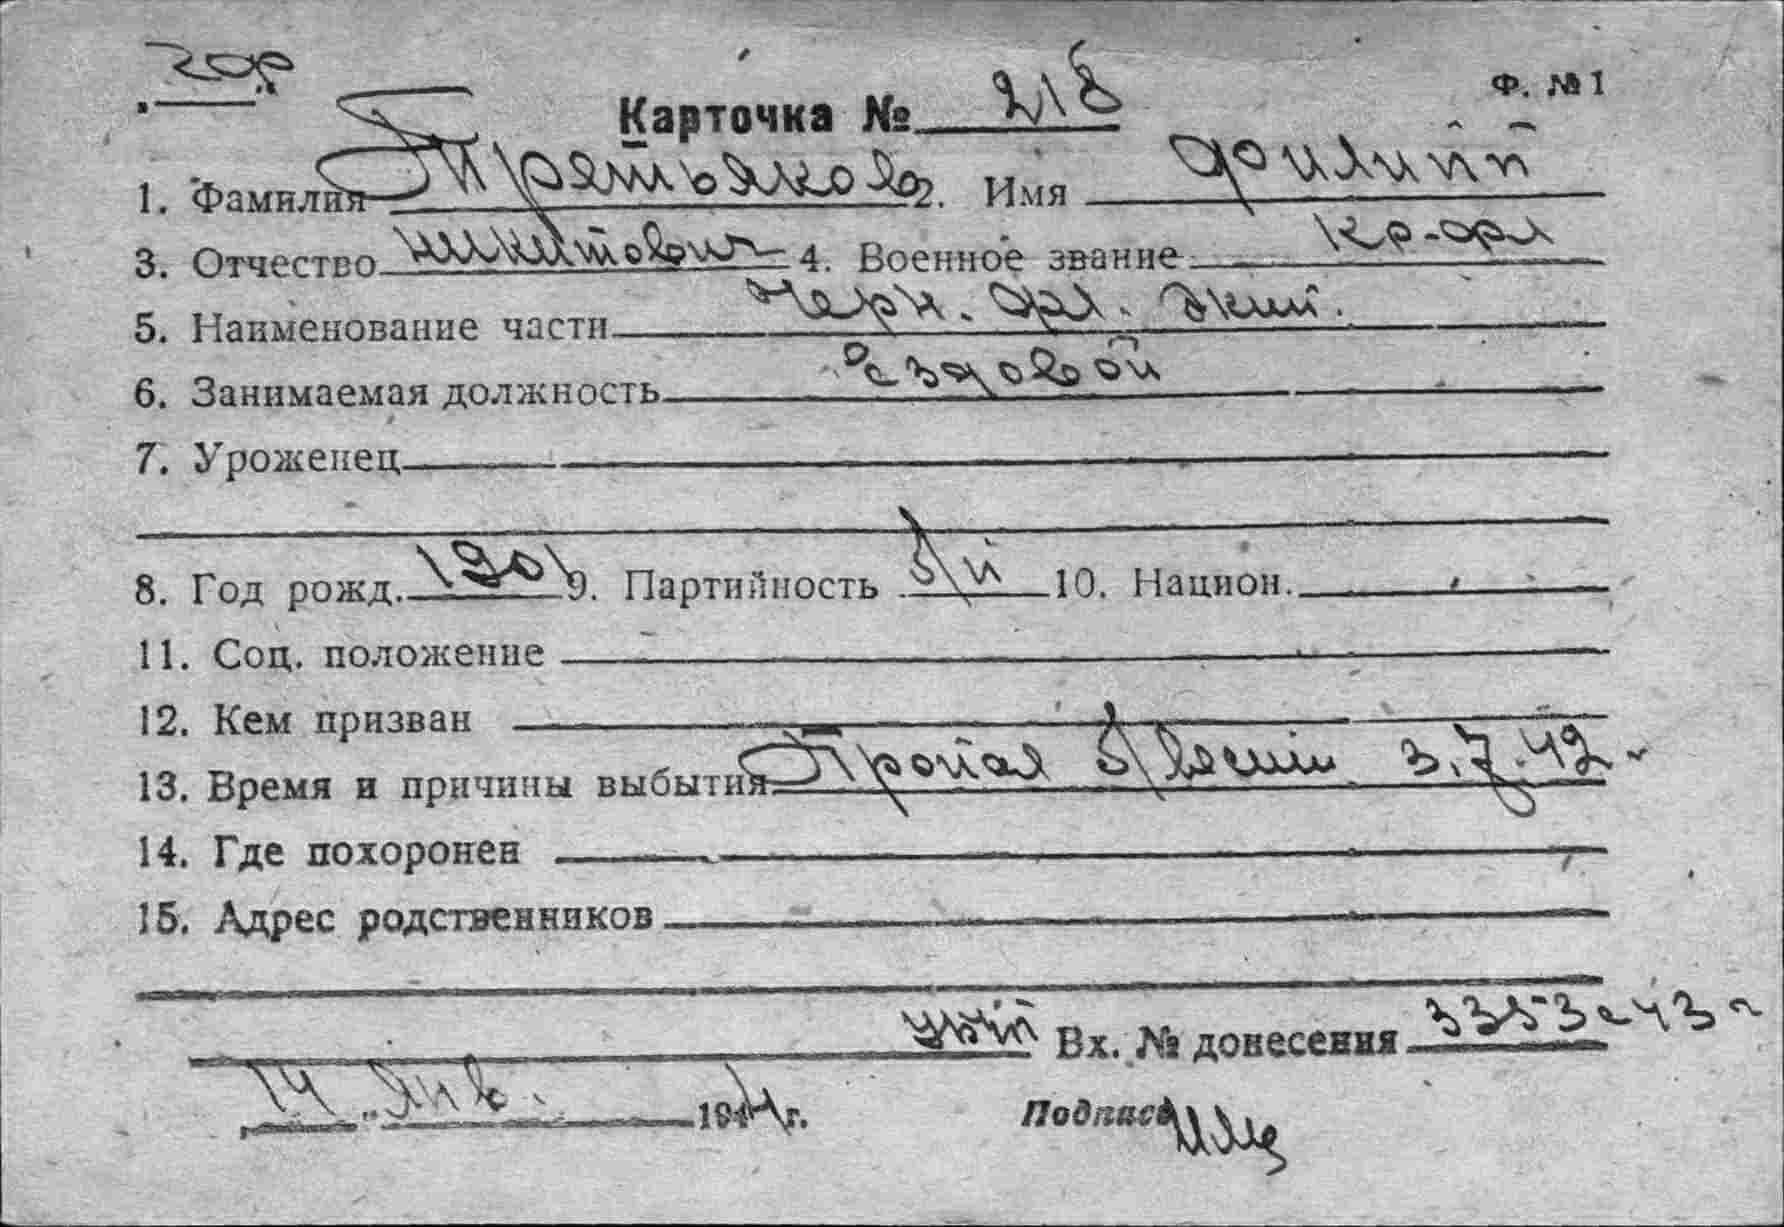 Карточка № 218 Ф. № 1
1. Фамилия Третьяков 2. Имя Филипп
3. Отчество Никитович 4. Военное звание кр-фл
5. Наименование части Черн. фл. экип.
6. Занимаемая должность Ездовой
7. Уроженец
8. Год рожд. 1901 9. Партийность б/п 10. Национ.
11. Соц. положение
12. Кем призван
13. Время и причины выбытия Пропал б/вести 3.7.42 г
14. Где похоронен
15. Адрес родственников
Вх. № донесения 3353с 43 г
14 янв. 1944 г.
Подпись